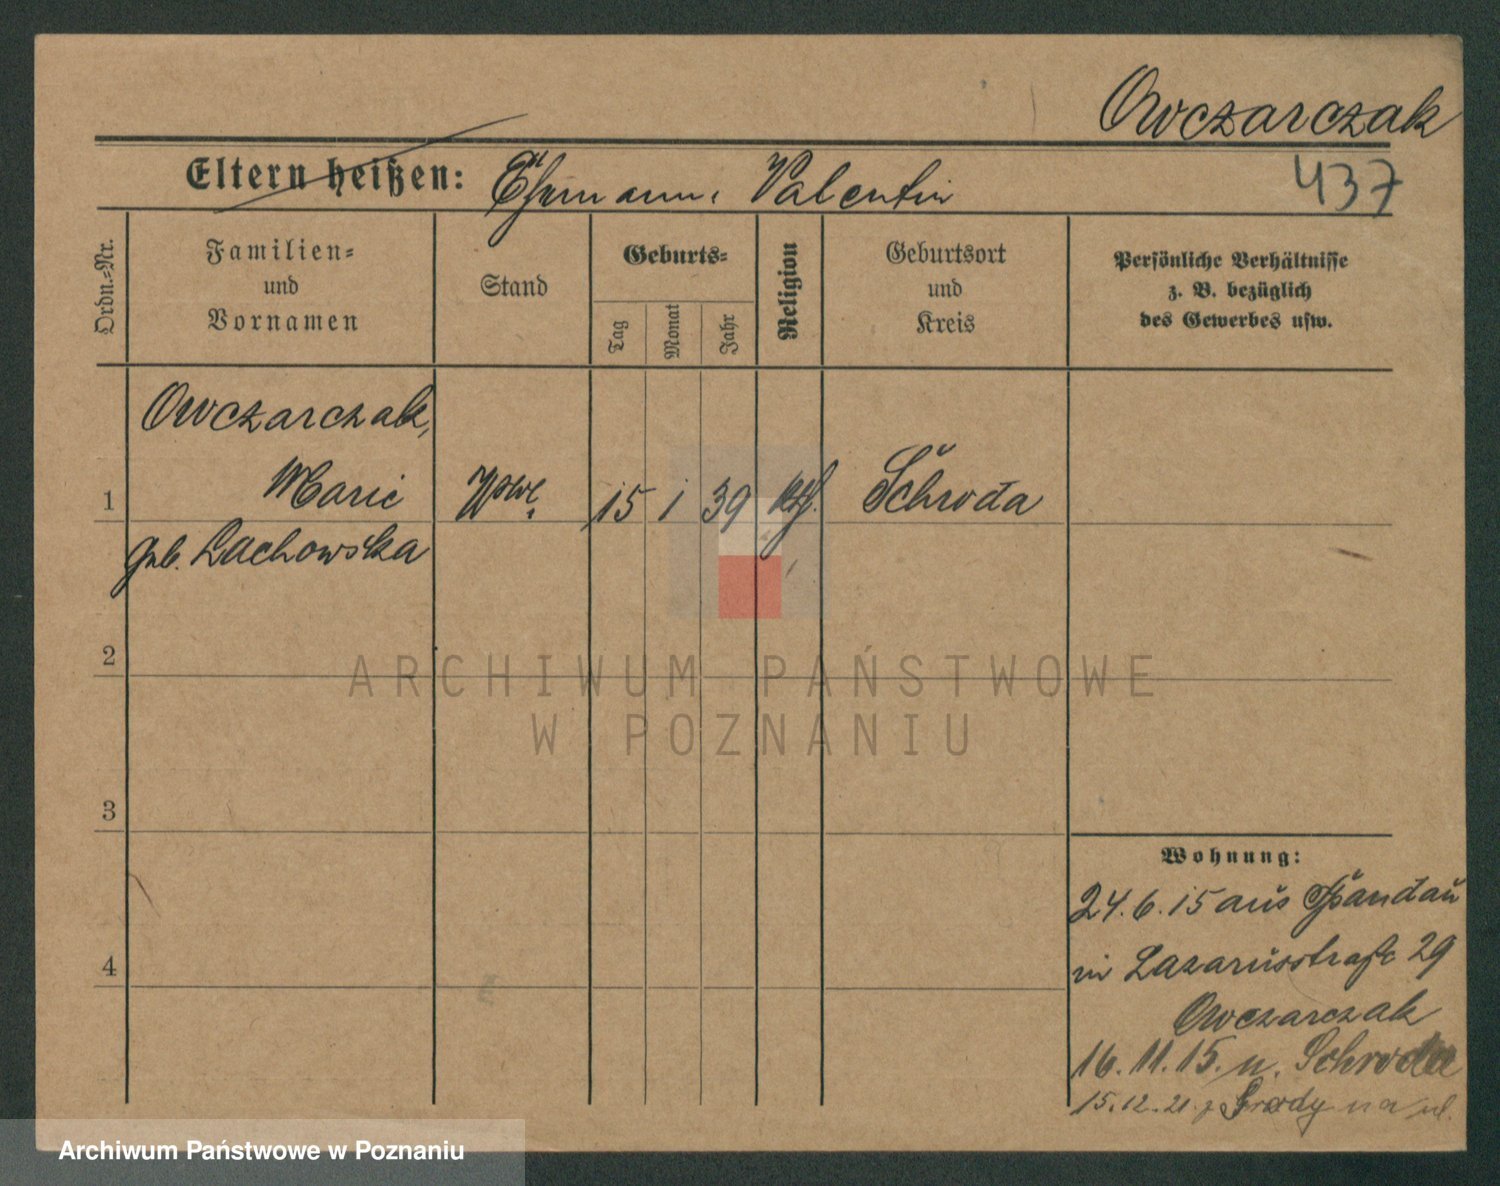 Owczarczak
437
Eltern heißen: Ehemann: Valentin
Ordn.=Nr.
Familien=
und
Vornamen
Stand
Geburts=
Tag
Monat
Jahr
Religion
Geburtsort
und
Kreis
Persönliche Verhältnisse
z. B. bezüglich
des Gewerbes usw.
Owczarczak,
1 Marie Wwe. 15 1 39 kth. Schroda
geb. Lachowska
2
3
4
Wohnung:
24.6.15 aus Spandau
in Lazarusstraße 29
Owczarczak
16.11.15. n. Schroda
15.12.21. z Środy na ul.
ARCHIWUM PAŃSTWOWE
W POZNANIU
Archiwum Państwowe w Poznaniu